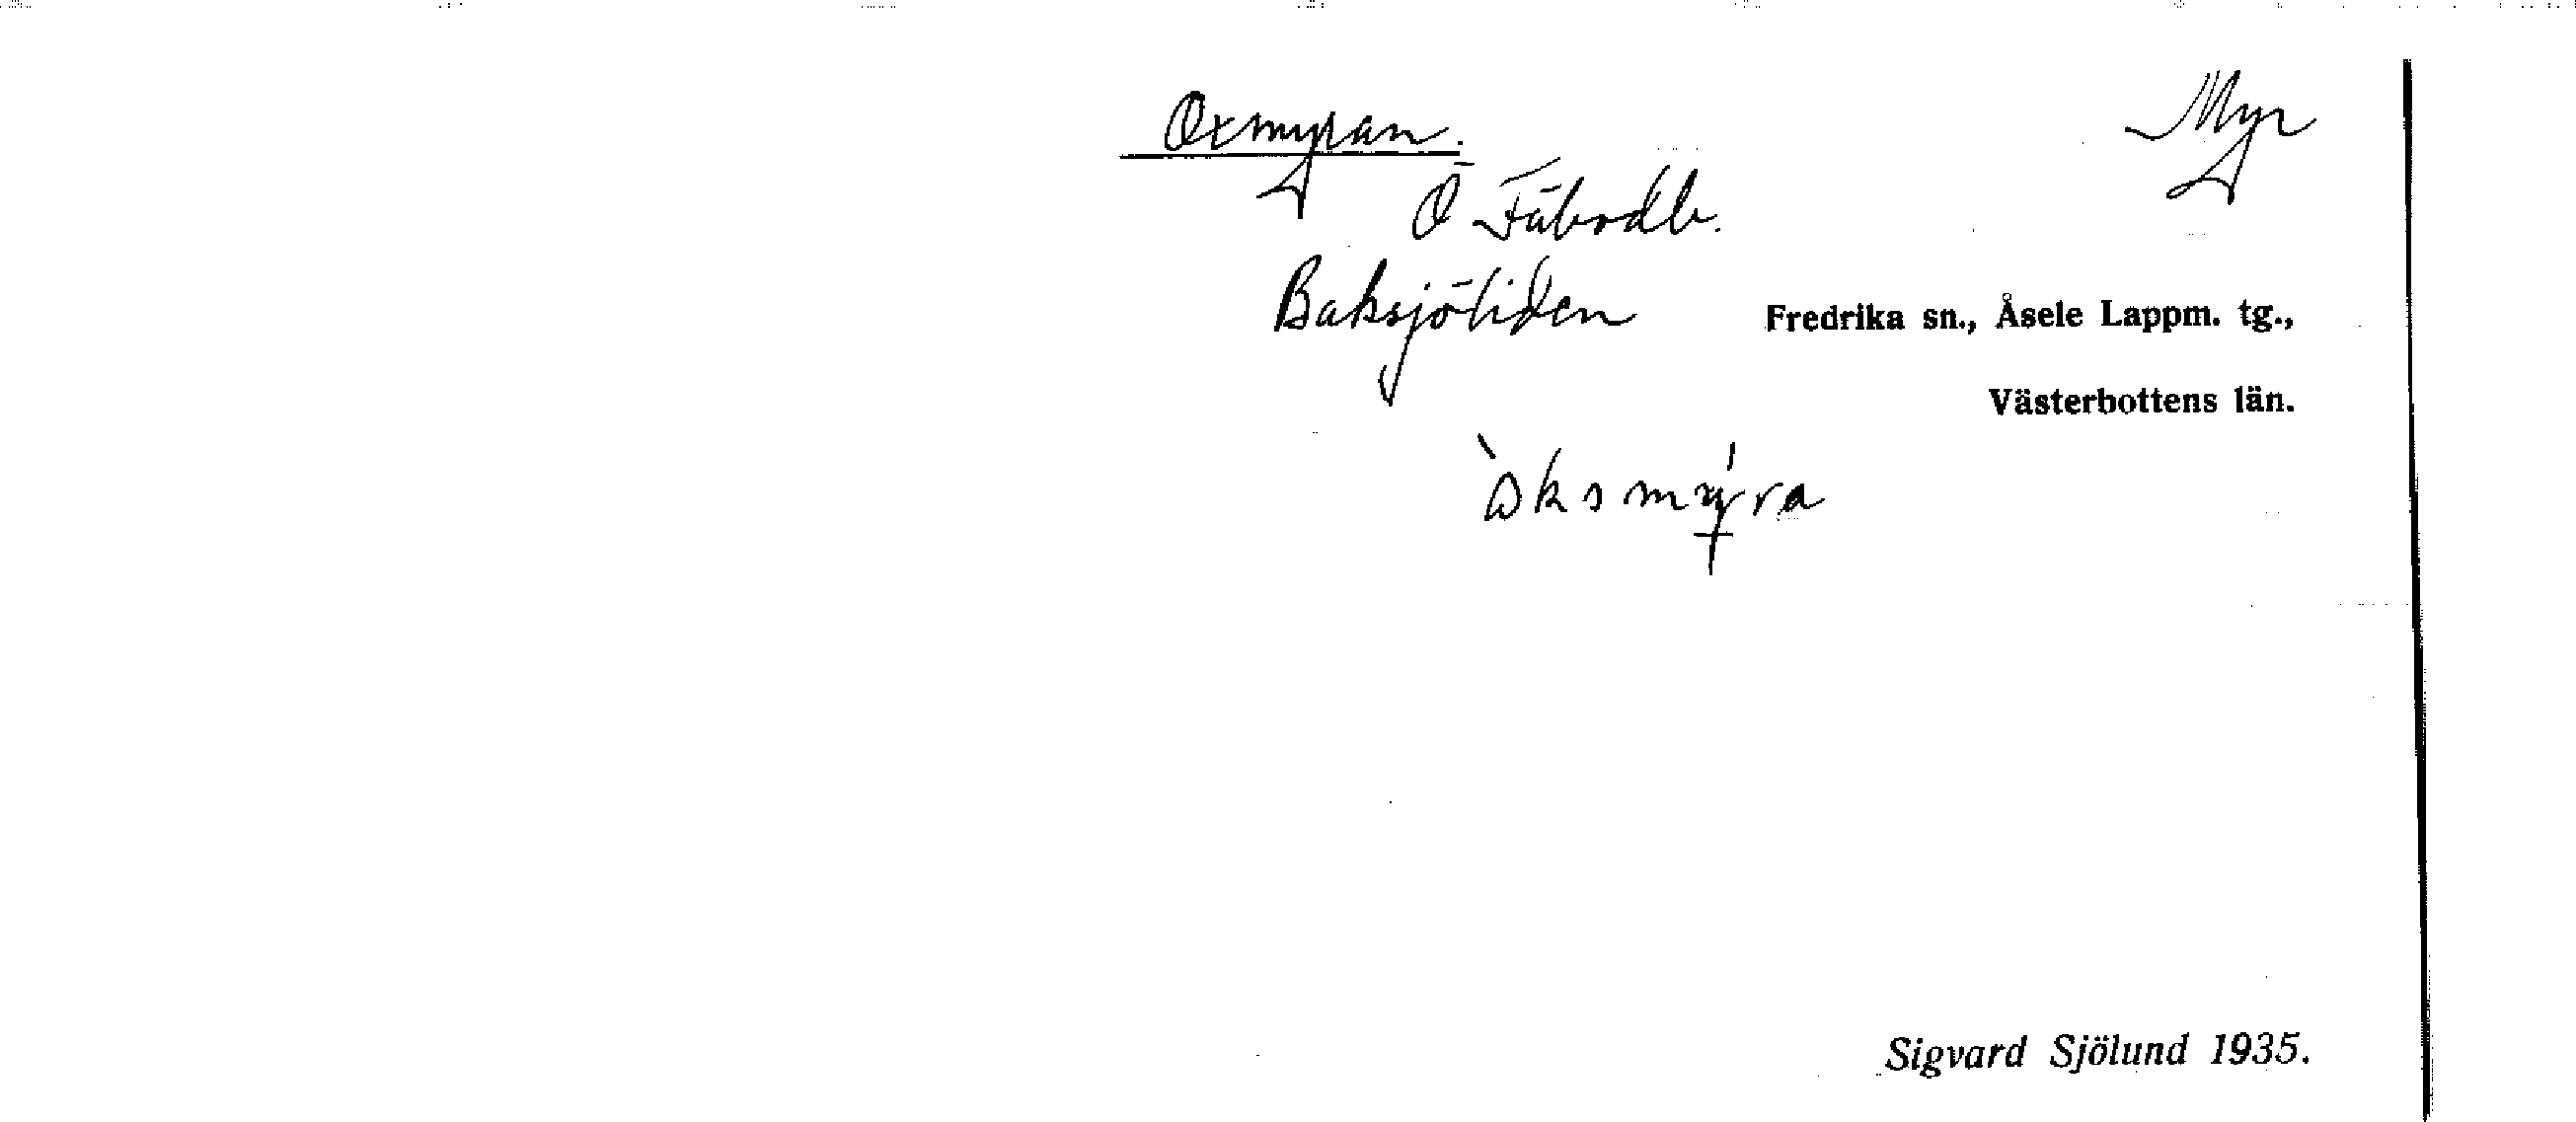 Oxmyran. Myr
Ö Fäbodb.
Baksjöliden Fredrika sn., Åsele Lappm. tg.,
Västerbottens län.
Sigvard Sjölund 1935.